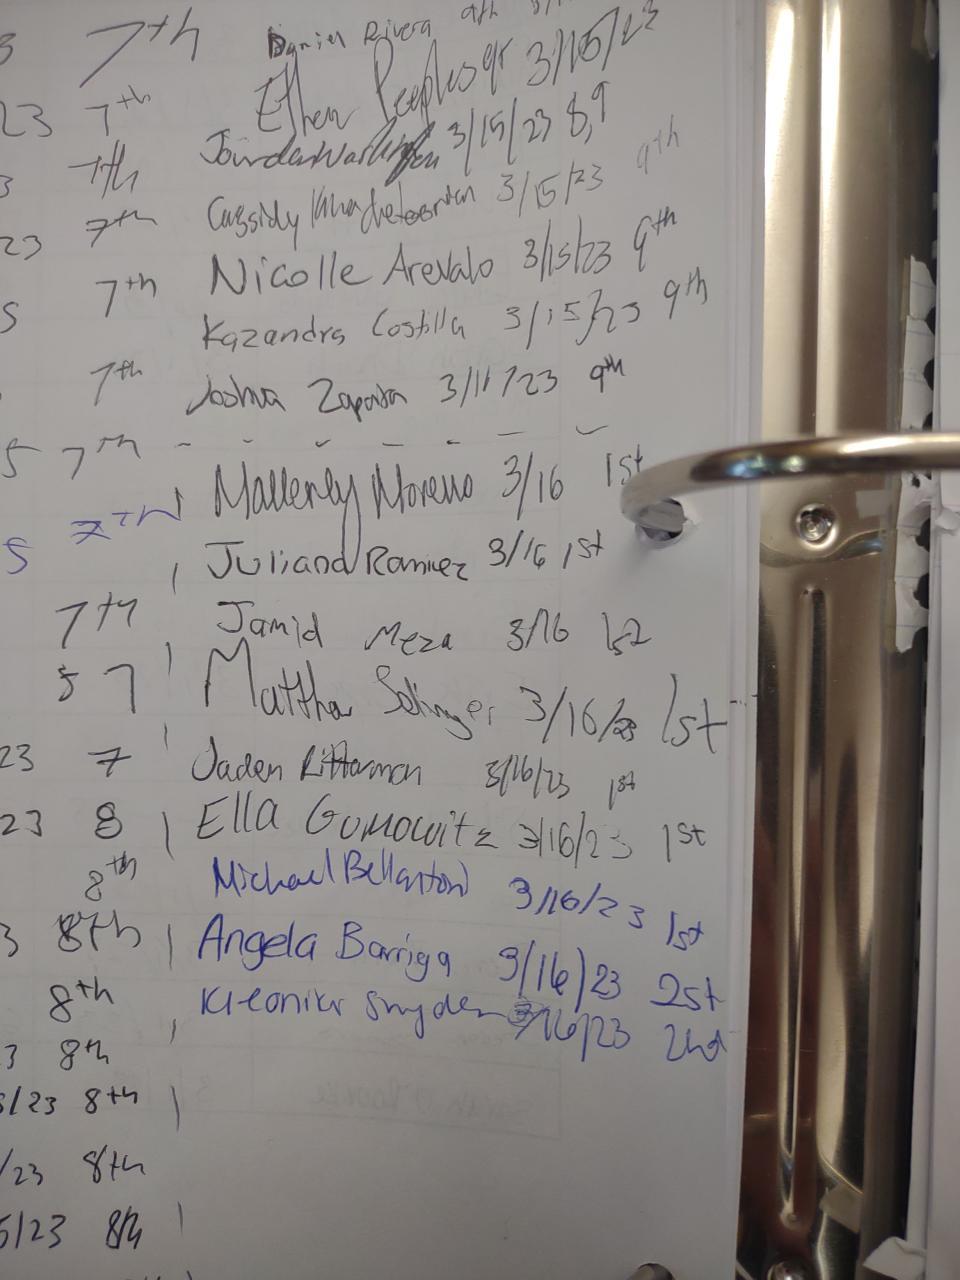 3 7th Daniel Rivera 9th
23 7th Ethan Peoples 9th 3/15/23
3 7th 3/15/23 8,9
23 7th Cassidy 3/15/23 9th
5 7th Nicolle Arevalo 3/15/23 9th
Kazandra Costilla 3/15/23 9th
7th Joshua Zapata 3/11/23 9th
5 7th
Mallerly Moreno 3/16 1st
5 7th
Juliana Ramirez 3/16 1st
7th Jamid Meza 3/16 1st
5 7 Matthew 3/16/23 1st
23 7 Jaden Rittarman 3/16/23 1st
23 8 Ella Gomowitz 3/16/23 1st
8th Michael Bellantoni 3/16/23 1st
3 8th Angela Barriga 3/16/23 2st
8th Snyder 3/16/23 2nd
3 8th
/23 8th
/23 8th
5/23 8th